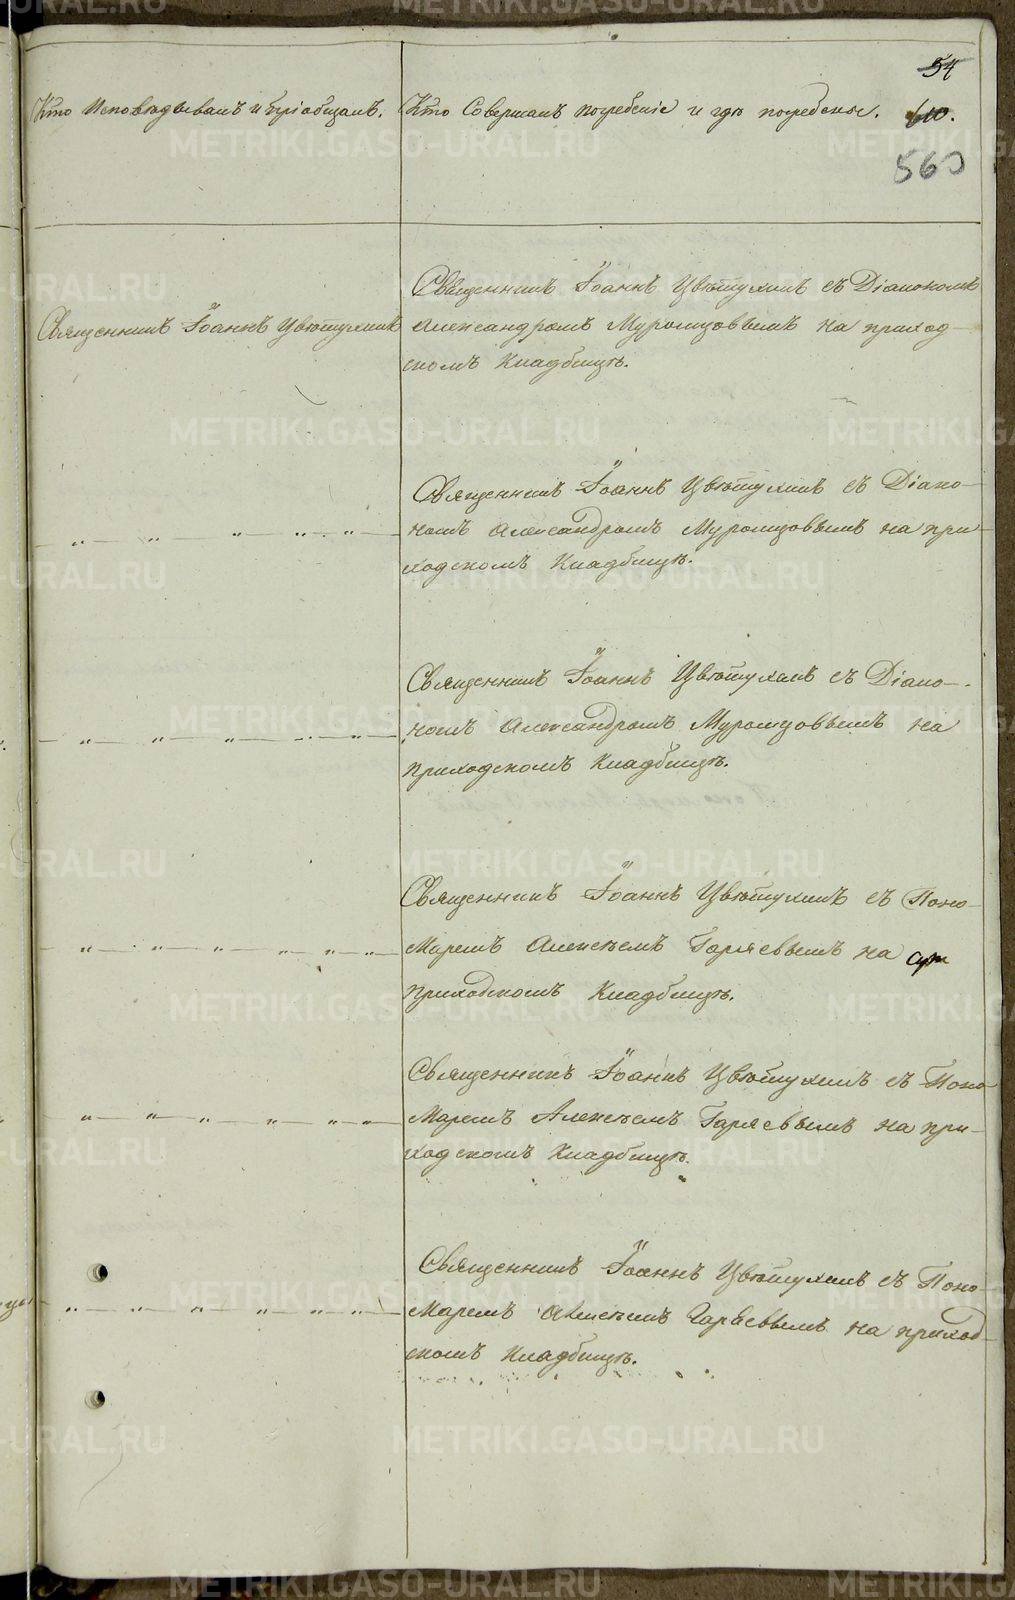 54
Кто Исповѣдывалъ и пріобщалъ.
Кто Совершалъ погребеніе и гдѣ погребены.
560
Священникъ Іоаннъ Цвѣтухинъ
Священникъ Іоаннъ Цвѣтухинъ съ Діакономъ
Александромъ Муромцовымъ на приход-
скомъ Кладбищѣ.
Священникъ Іоаннъ Цвѣтухинъ съ Діако-
номъ Александромъ Муромцовымъ на при-
ходскомъ Кладбищѣ.
Священникъ Іоаннъ Цвѣтухинъ съ Діако-
номъ Александромъ Муромцовымъ на
приходскомъ Кладбищѣ.
Священникъ Іоаннъ Цвѣтухинъ съ Поно-
маремъ Алексѣемъ Гаряевымъ на
приходскомъ Кладбищѣ.
Священникъ Іоаннъ Цвѣтухинъ съ Поно-
маремъ Алексѣемъ Гаряевымъ на при-
ходскомъ Кладбищѣ.
Священникъ Іоаннъ Цвѣтухинъ съ Поно-
маремъ Алексѣемъ Гаряевымъ на приход-
скомъ Кладбищѣ.
METRIKI.GASO-URAL.RU